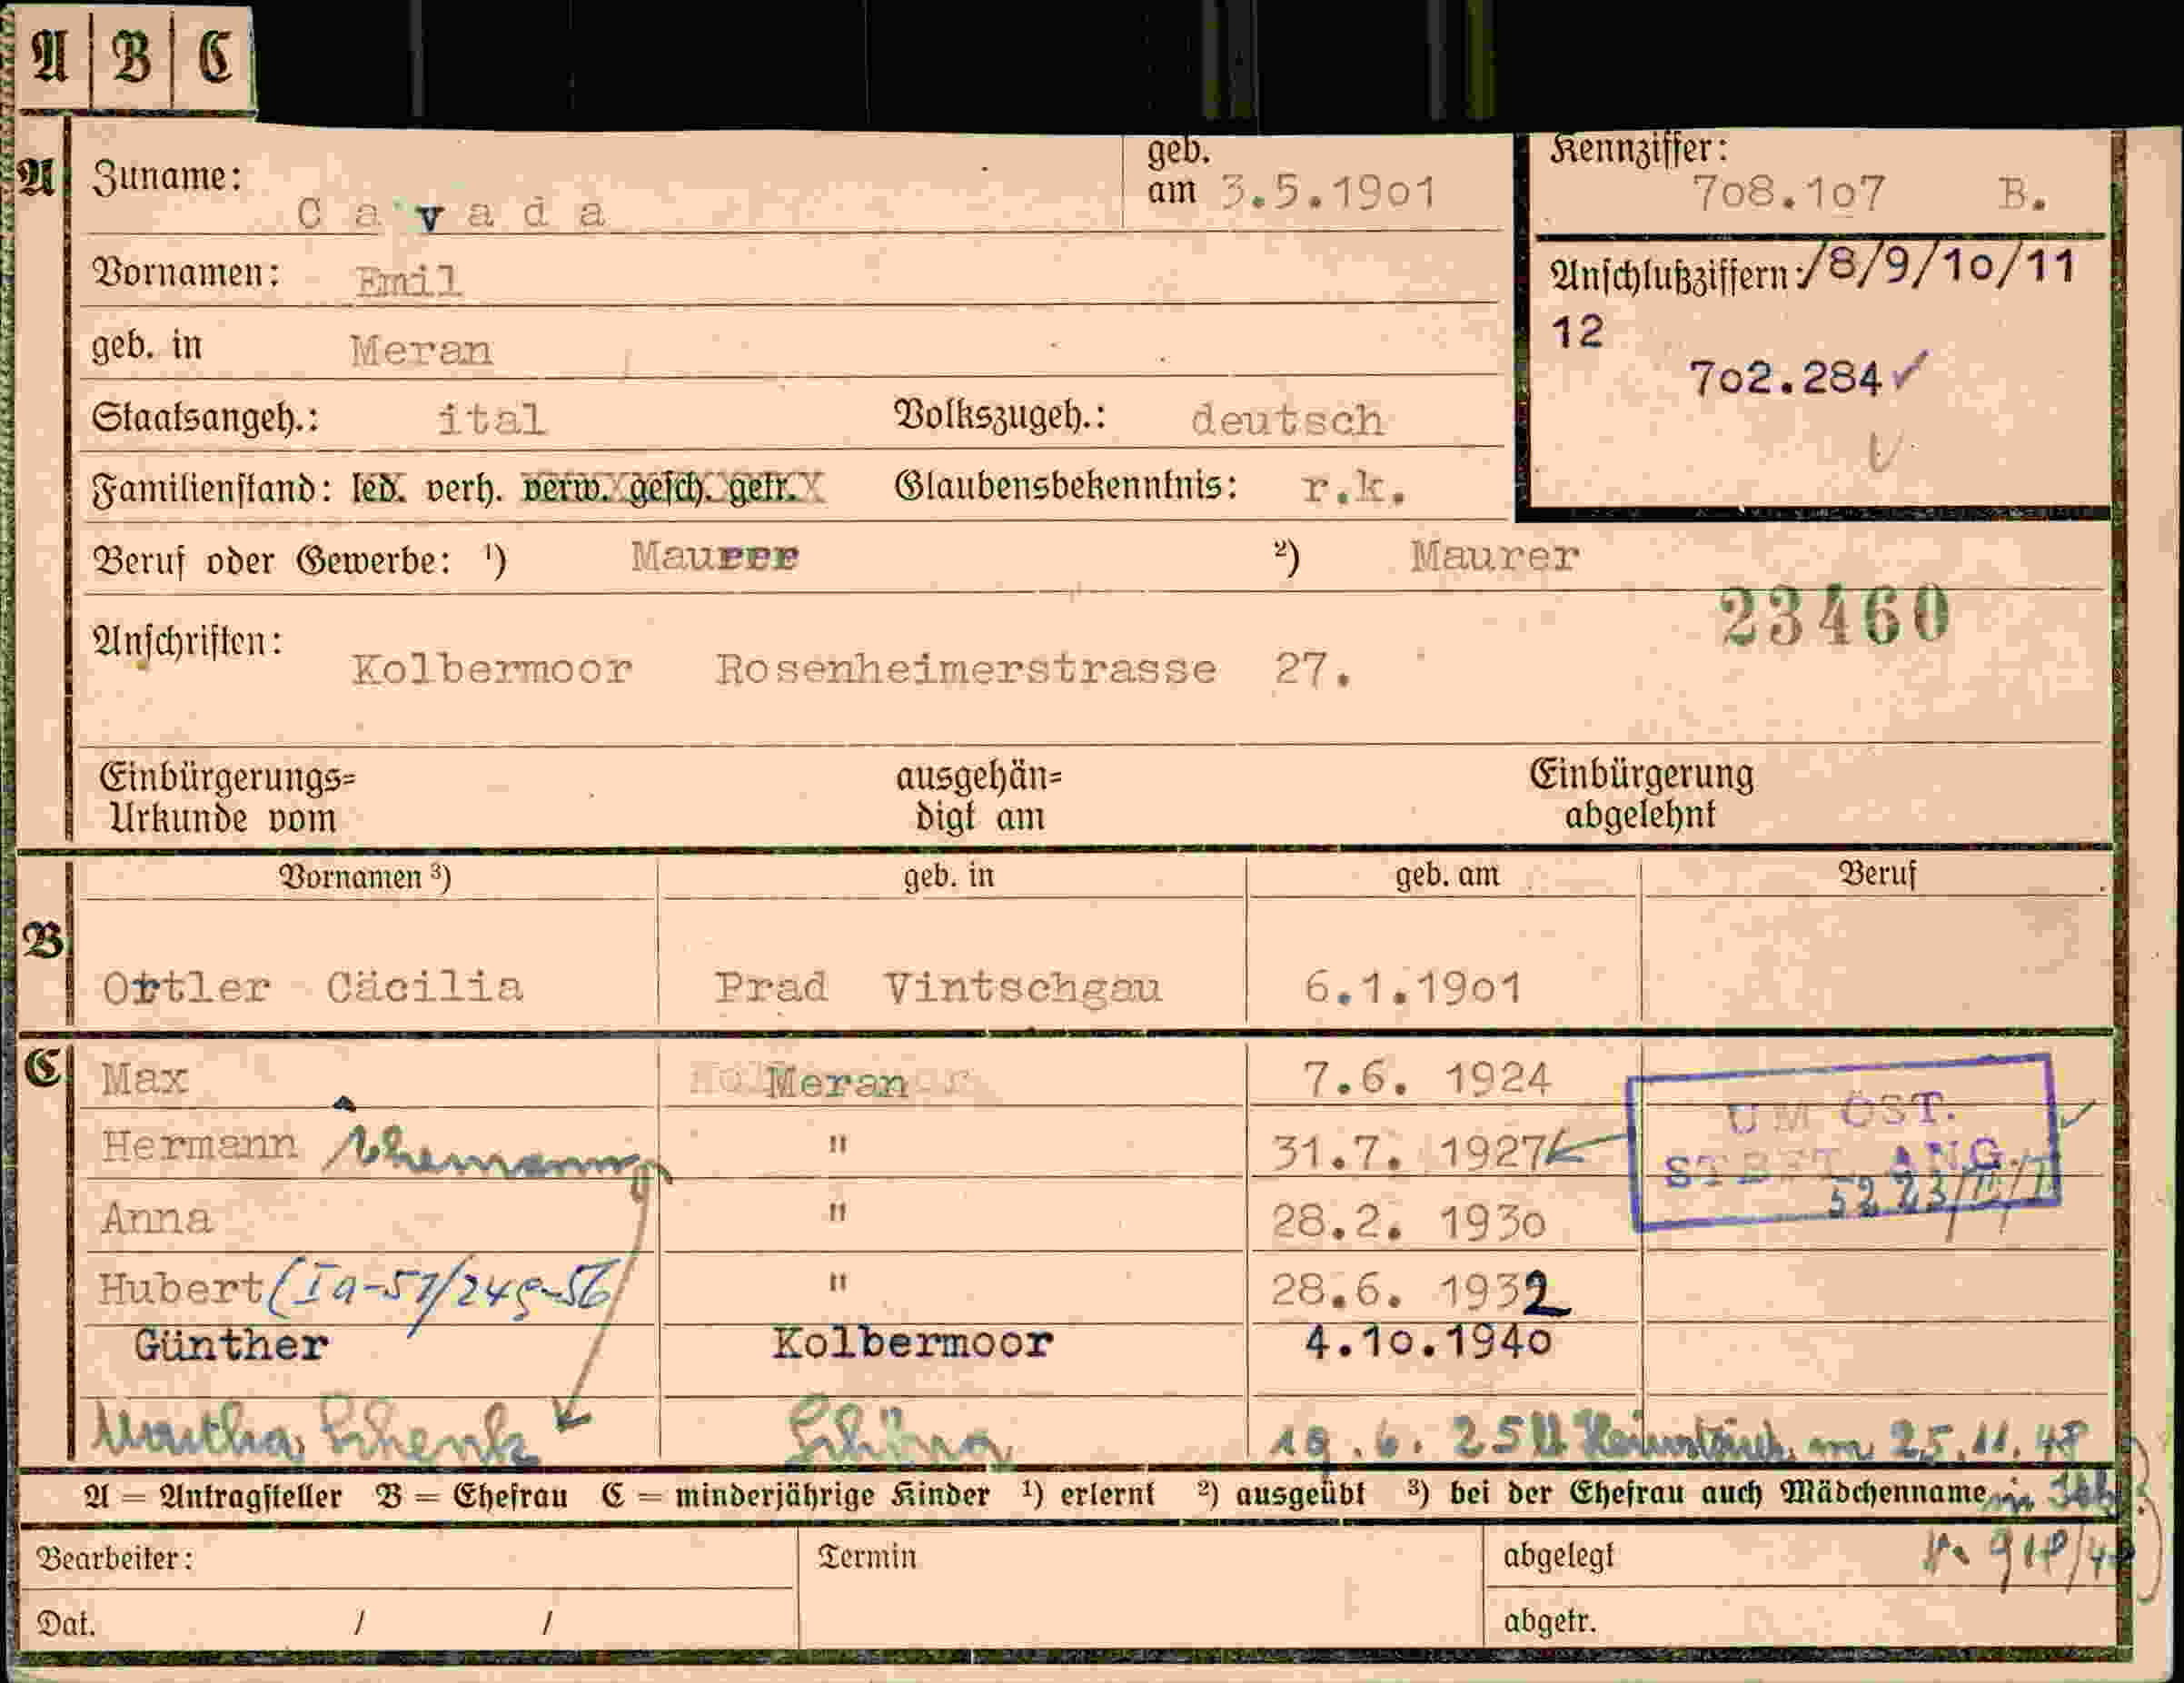 A B C
A Zuname: Cavada geb. am 3.5.1901 Kennziffer: 708.107 B.
Vornamen: Emil Anschlußziffern: /8/9/10/11
12
geb. in Meran 702.284 ✓
Staatsangeh.: ital Volkszugeh.: deutsch
Familienstand: led. verh. verw. gesch. getr. Glaubensbekenntnis: r.k.
Beruf oder Gewerbe: ¹) Maurer ²) Maurer
23460
Anschriften: Kolbermoor Rosenheimerstrasse 27.
Einbürgerungs= ausgehän= Einbürgerung
Urkunde vom digt am abgelehnt
Vornamen ³) geb. in geb. am Beruf
B Ottler Cäcilia Prad Vintschgau 6.1.1901
C Max Meran 7.6. 1924
UM ÖST.
Hermann " 31.7. 1927
ANG.
5223/II/I
Anna " 28.2. 1930
Hubert (Ia-57/249-56 " 28.6. 1932
Günther Kolbermoor 4.10.1940
Martha Schenk 19.6.25 am 25.11.48
A = Antragsteller B = Ehefrau C = minderjährige Kinder ¹) erlernt ²) ausgeübt ³) bei der Ehefrau auch Mädchenname
Bearbeiter: Termin abgelegt 918/48
Dat. / / abgetr.